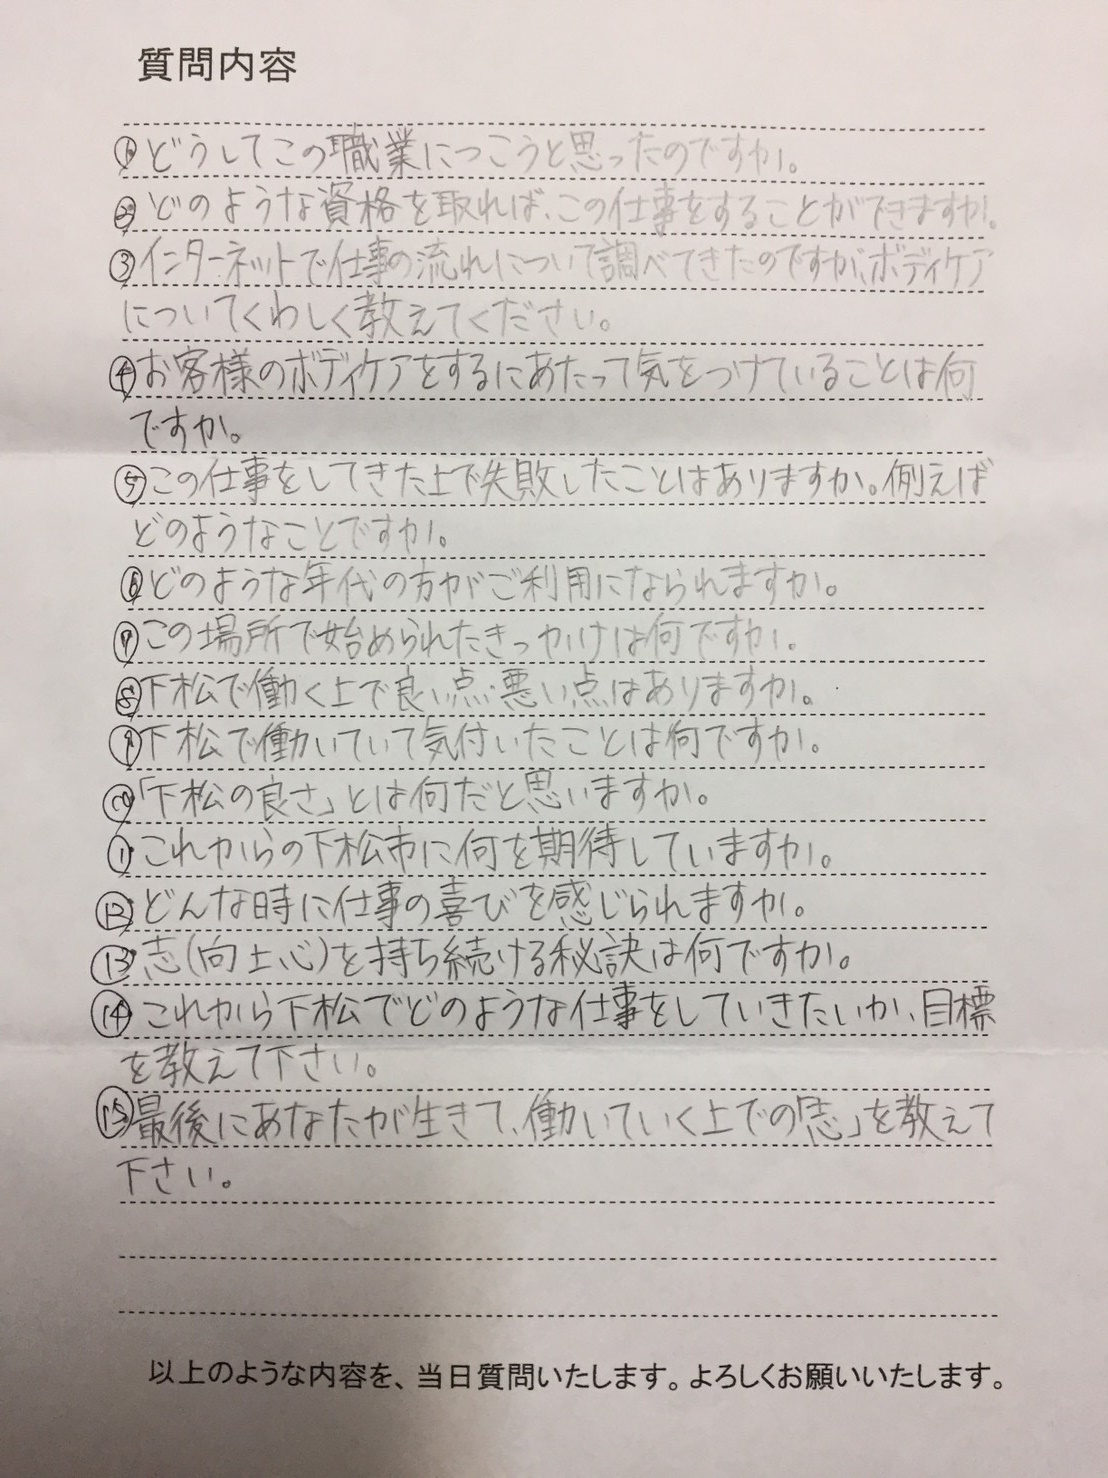 質問内容
①どうしてこの職業につこうと思ったのですか。
②どのような資格を取れば、この仕事をすることができますか。
③インターネットで仕事の流れについて調べてきたのですが、ボディケア
についてくわしく教えてください。
④お客様のボディケアをするにあたって気をつけていることは何
ですか。
⑤この仕事をしてきた上で失敗したことはありますか。例えば
どのようなことですか。
⑥どのような年代の方がご利用になられますか。
⑦この場所で始められたきっかけは何ですか。
⑧下松で働く上で良い点・悪い点はありますか。
⑨下松で働いていて気付いたことは何ですか。
⑩「下松の良さ」とは何だと思いますか。
⑪これからの下松市に何を期待していますか。
⑫どんな時に仕事の喜びを感じられますか。
⑬志(向上心)を持ち続ける秘訣は何ですか。
⑭これから下松でどのような仕事をしていきたいか、目標
を教えて下さい。
⑮最後にあなたが生きて、働いていく上での「志」を教えて
下さい。
以上のような内容を、当日質問いたします。よろしくお願いいたします。